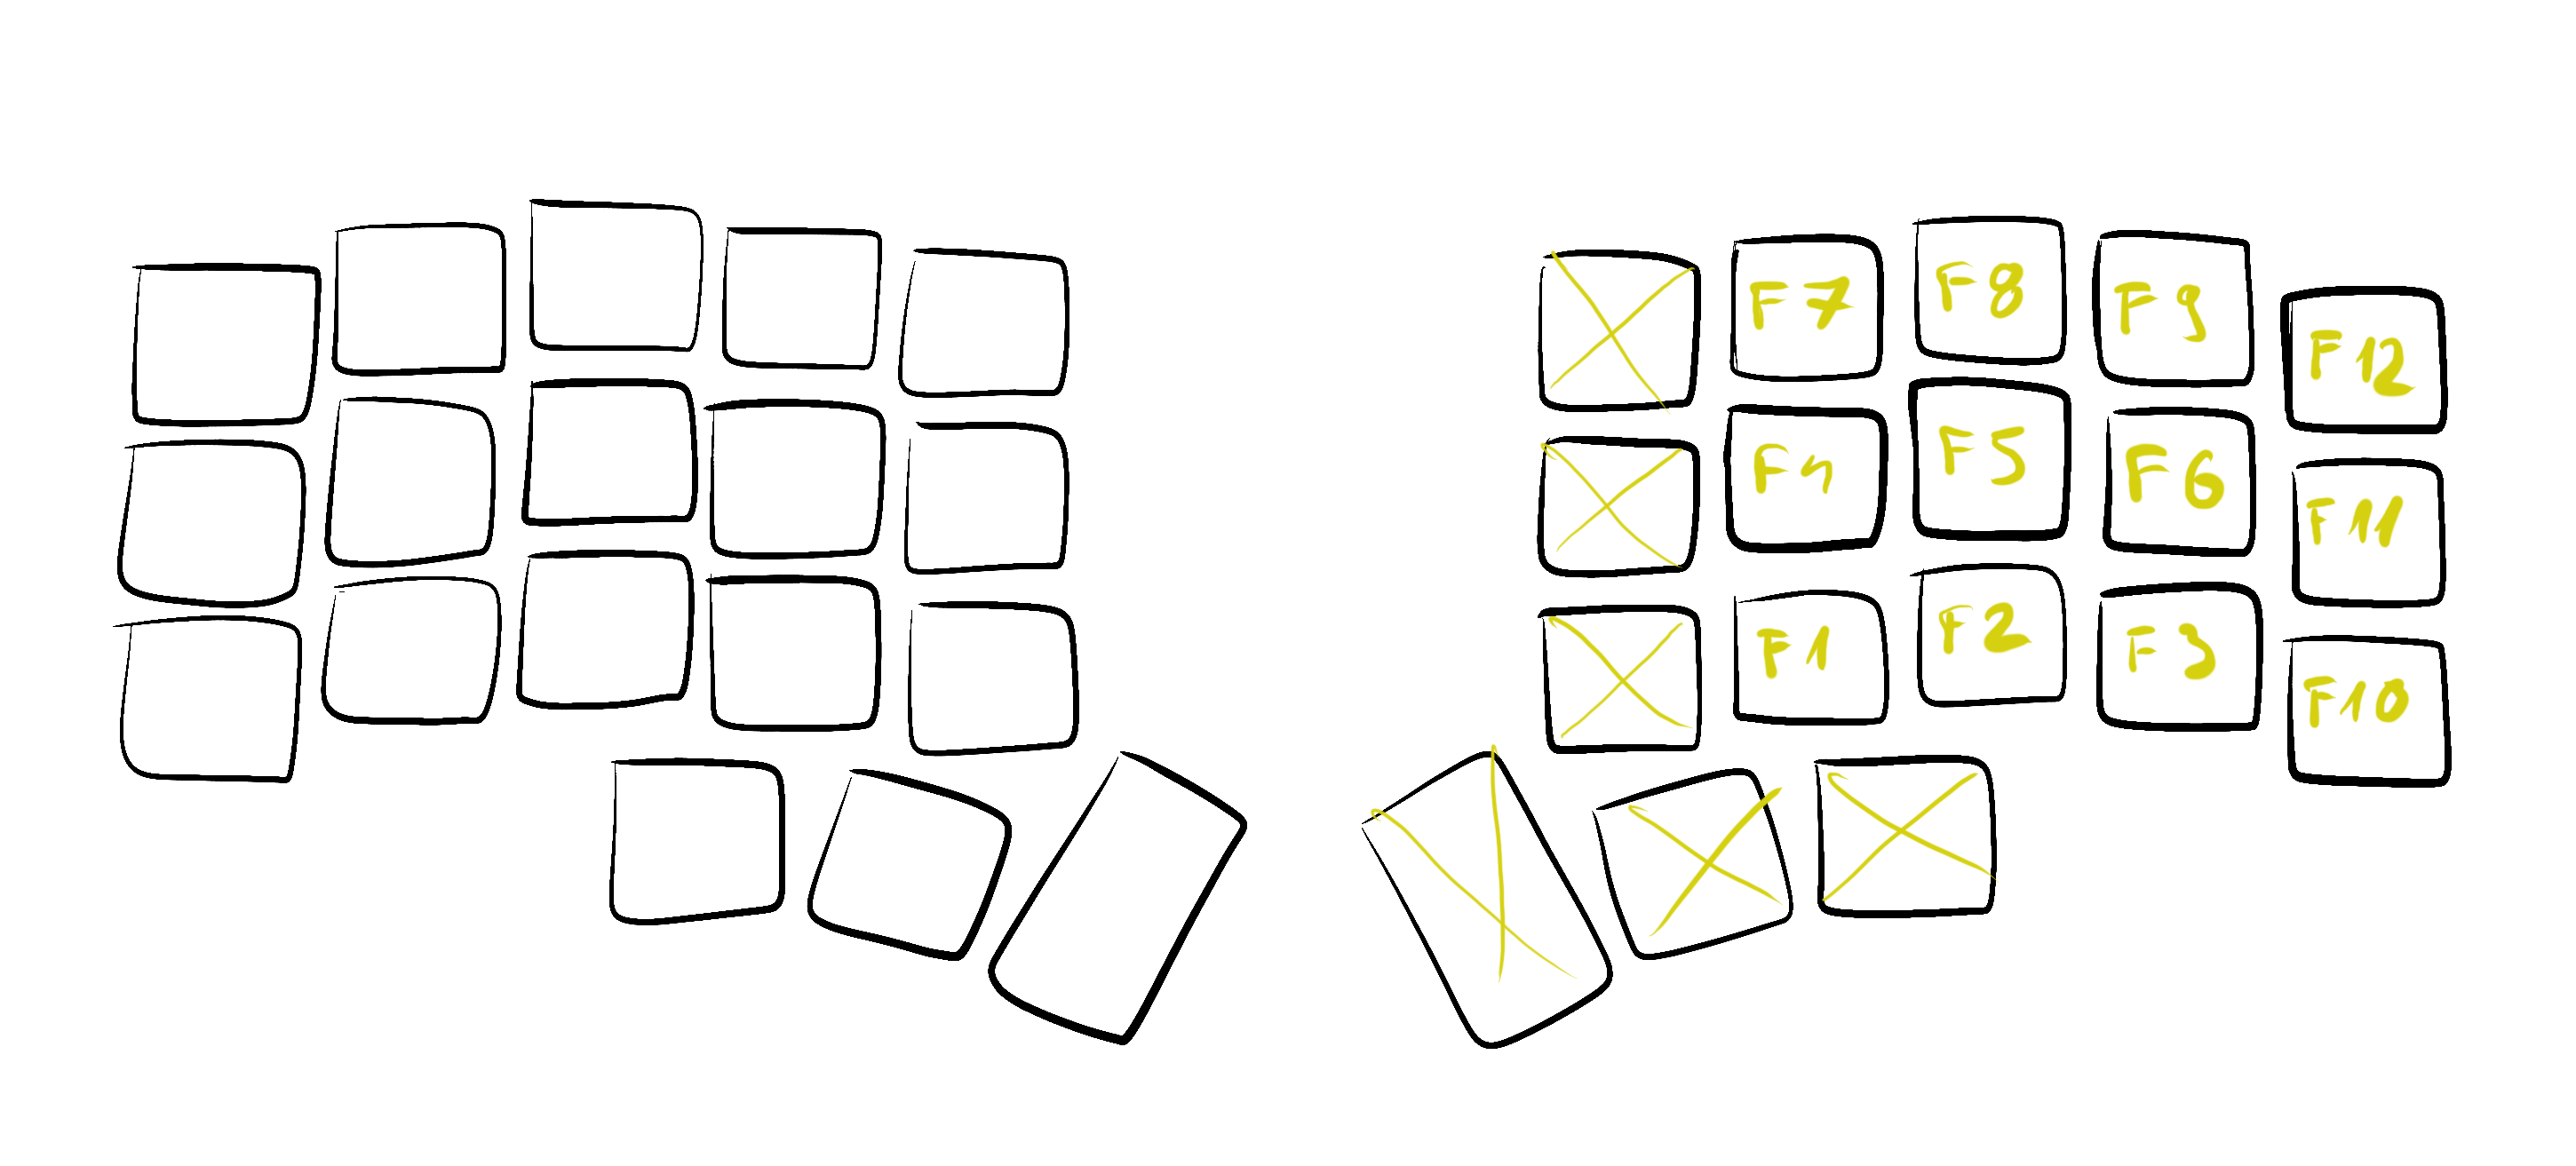 F7 F8 F9 F12
F4 F5 F6 F11
F1 F2 F3 F10